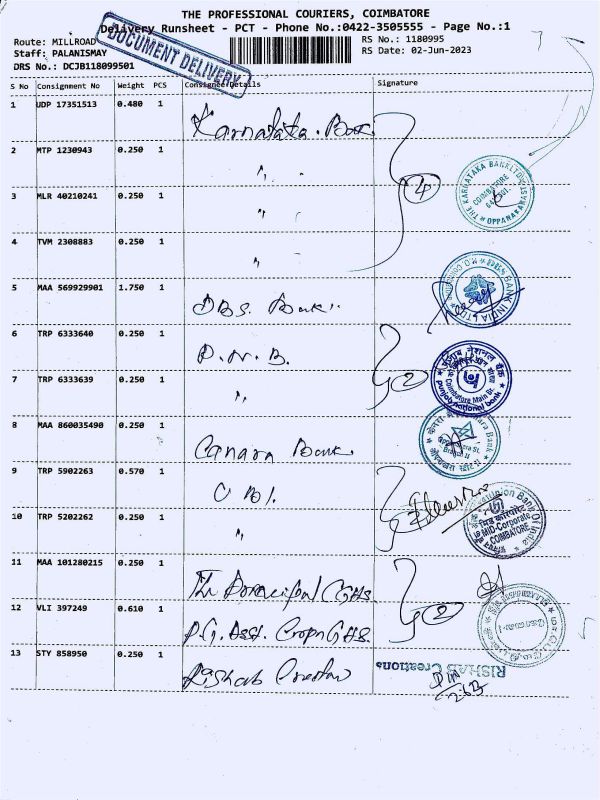 THE PROFESSIONAL COURIERS, COIMBATORE
Delivery Runsheet - PCT - Phone No.:0422-3505555 - Page No.:1
Route: MILLROAD
RS No.: 1180995
Staff: PALANISMAY
RS Date: 02-Jun-2023
DRS No.: DCJB118099501
DOCUMENT DELIVERY
S No Consignment No Weight PCS Consignee Details Signature
1 UDP 17351513 0.480 1 Karnataka Bank
2 MTP 1230943 0.250 1 "
3 MLR 40210241 0.250 1 "
4 TVM 2308883 0.250 1 "
4
THE KARNATAKA BANK LTD
COIMBATORE
5 MAA 569929901 1.750 1 DBS Bank
BANK INDIA LTD
6 TRP 6333640 0.250 1 P.N.B.
7 TRP 6333639 0.250 1 "
2
पंजाब नैशनल बैंक
Coimbatore Main Br.
punjab national bank
8 MAA 860035490 0.250 1 Canara Bank
9 TRP 5902263 0.570 1 UBI
10 TRP 5202262 0.250 1 "
Union Bank Of India
MID-Corporate
COIMBATORE
11 MAA 101280215 0.250 1 The Principal GHS
12 VLI 397249 0.610 1 P.G. Asst. GHS
2
13 STY 858950 0.250 1 Rishab Creation
RISHAB Creations